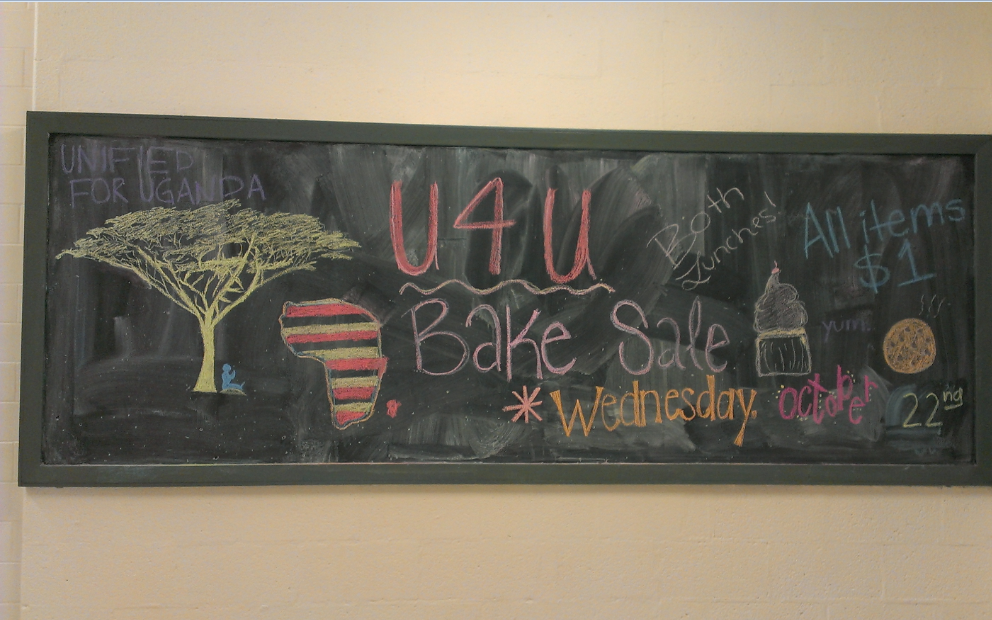 UNIFIED
FOR UGANDA
U4U
Bake Sale
Both
Lunches!
All items
$1
yum.
*Wednesday, october 22nd